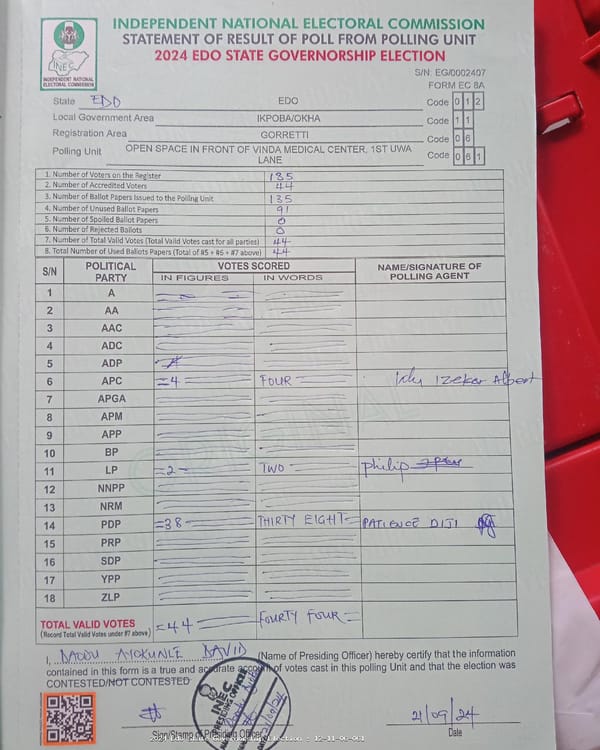 INDEPENDENT NATIONAL ELECTORAL COMMISSION
STATEMENT OF RESULT OF POLL FROM POLLING UNIT
2024 EDO STATE GOVERNORSHIP ELECTION
INEC
INDEPENDENT NATIONAL
ELECTORAL COMMISSION
S/N: EG/0002407
FORM EC 8A
State EDO EDO Code 0 1 2
Local Government Area IKPOBA/OKHA Code 1 1
Registration Area GORRETTI Code 0 6
Polling Unit OPEN SPACE IN FRONT OF VINDA MEDICAL CENTER, 1ST UWA LANE Code 0 6 1
1. Number of Voters on the Register 135
2. Number of Accredited Voters 44
3. Number of Ballot Papers Issued to the Polling Unit 135
4. Number of Unused Ballot Papers 91
5. Number of Spoiled Ballot Papers 0
6. Number of Rejected Ballots 0
7. Number of Total Valid Votes (Total Valid Votes cast for all parties) 44
8. Total Number of Used Ballots Papers (Total of #5 + #6 + #7 above) 44
S/N POLITICAL PARTY VOTES SCORED NAME/SIGNATURE OF POLLING AGENT
IN FIGURES IN WORDS
1 A
2 AA
3 AAC
4 ADC
5 ADP
6 APC =4 FOUR Izekor Albert
7 APGA
8 APM
9 APP
10 BP
11 LP =2 TWO Philip
12 NNPP
13 NRM
14 PDP =38 THIRTY EIGHT PATIENCE DIJI
15 PRP
16 SDP
17 YPP
18 ZLP
TOTAL VALID VOTES =44 FOURTY FOUR
(Record Total Valid Votes under #7 above)
I, DADU AYOKUNLE DAVID (Name of Presiding Officer) hereby certify that the information
contained in this form is a true and accurate account of votes cast in this polling Unit and that the election was
CONTESTED/NOT CONTESTED
INEC
PRESIDING OFFICER
21/09/24
Sign/Stamp of Presiding Officer
Date